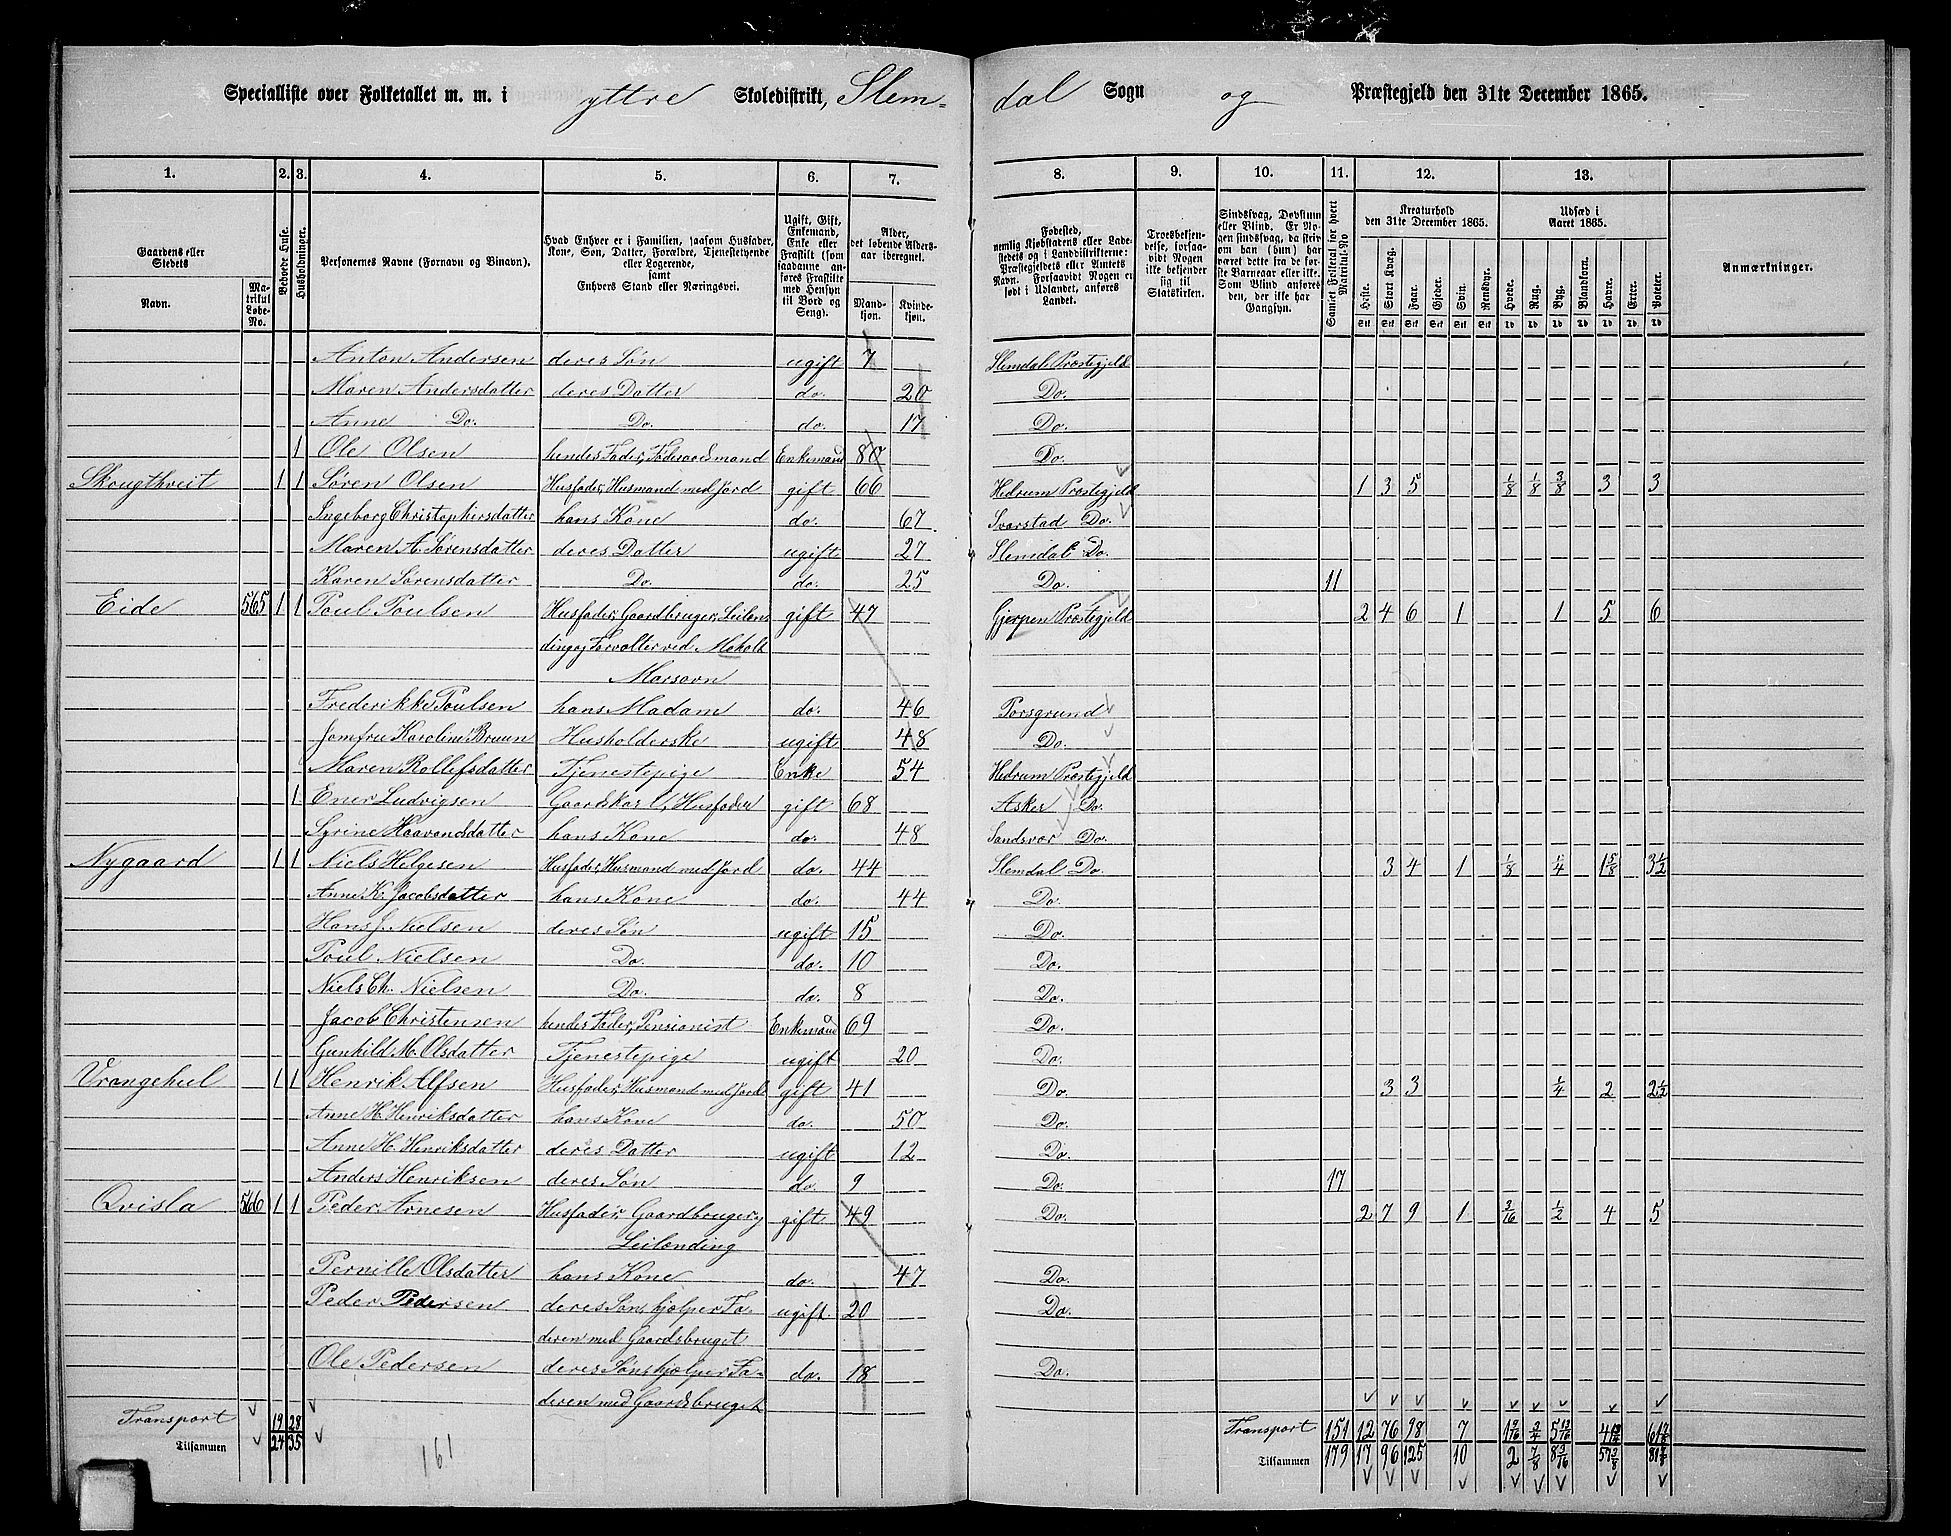 Specialliste over Folketallet m. m. i yttre Skoledistrikt, Slem-dal Sogn og Præstegjeld den 31te December 1865.
1. 2. 3. 4. 5. 6. 7. 8. 9. 10. 11. 12. 13.
Gaardens eller Stedets
Navn.
Matrikul Løbe-No.
Beboede Huse.
Husholdninger.
Personernes Navne (Fornavn og Binavn).
Hvad Enhver er i Familien, saasom Husfader, Kone, Søn, Datter, Forældre, Tjenestetyende eller Logerende, samt Enhvers Stand eller Næringsvei.
Ugift, Gift, Enkemand, Enke eller Fraskilt (som saadanne anføres Fraskilte med Hensyn til Bord og Seng).
Alder, det løbende Aldersaar iberegnet.
Mandkjøn. Kvindekjøn.
Fødested, nemlig Kjøbstadens eller Ladestedets og i Landdistrikterne: Præstegjeldets eller Amtets Navn. Forsaavidt Nogen er født i Udlandet, anføres Landet.
Troesbekjendelse, forsaavidt Nogen ikke bekjender sig til Statskirken.
Sindssvag, Døvstum eller Blind. Er Nogen sindssvag, da skrives om han (hun) har været dette fra de første Barneaar eller ikke. Som Blind anføres den, der ikke har Gangsyn.
Samlet Folketal for hvert Matrikul-No
Kreaturhold den 31te December 1865.
Heste. Stort Kvæg. Faar. Gjeder. Svin. Rensdyr.
Udsæd i Aaret 1865.
Hvede. Rug. Byg. Blandkorn. Havre. Erter. Poteter.
Anmærkninger.
Anton Andersen deres Søn ugift 7 Slemdal Præstegjeld
Maren Andersdatter deres Datter do. 20 Do.
Anne Do. Do. do. 17 Do.
1 Ole Olsen hendes Fader, Føderaadsmand Enkemand 80 Do.
Skougthveit 1 1 Søren Olsen Husfader, Husmand med Jord gift 66 Hedrum Præstegjeld 1 3 5 1/8 1/8 3/8 3 3
Ingeborg Christophersdatter hans Kone do. 67 Svarstad Do.
Maren A. Sørensdatter deres Datter ugift 27 Slemdal Do.
Karen Sørensdatter Do. do. 25 Do. 11
Eide 565 1 1 Poul Poulsen Husfader, Gaardbruger, Leilen- gift 47 Gjerpen Præstegjeld 2 4 6 1 1 5 6
ding og Forvalter ved Moholt
Marsovn
Frederikke Poulsen hans Madam do. 46 Porsgrund
Jomfru Karoline Bruun Husholderske ugift 48 Do.
Maren Rollefsdatter Tjenestepige Enke 54 Hedrum Præstegjeld
1 Ener Ludvigsen Gaardskarl, Husfader gift 68 Asker Do.
Syrine Haavorsdatter hans Kone do. 48 Sandsvær Do.
Nygaard 1 1 Niels Helgesen Husfader, Husmand med Jord do. 44 Slemdal Do. 3 4 1 1/8 1/4 1 5/8 3 1/2
Anne K. Jacobsdatter hans Kone do. 44 Do.
Hans J. Nielsen deres Søn ugift 15 Do.
Poul Nielsen Do. do. 10 Do.
Niels Ch. Nielsen Do. do. 8 Do.
Jacob Christensen hendes Fader, Pensionist Enkemand 69 Do.
Gunhild M. Olsdatter Tjenestepige ugift 20 Do.
Vrangehul 1 1 Henrik Alfsen Husfader, Husmand med Jord gift 41 Do. 3 3 1/4 2 2 1/2
Anne H. Henriksdatter hans Kone do. 50 Do.
Anne H. Henriksdatter deres Datter ugift 12 Do.
Anders Henriksen deres Søn do. 9 Do. 17
Qvisla 566 1 1 Peder Arnesen Husfader, Gaardbruger og gift 49 Do. 2 7 9 1 3/16 1/2 4 5
Leilending
Pernille Olsdatter hans Kone do. 47 Do.
Peder Pedersen deres Søn, hjælper Fa- ugift 20 Do.
deren med Gaardsbruget
Ole Pedersen deres Søn, hjælper Fa- do. 18 Do.
deren med Gaardsbruget
Transport 19 28 Transport 151 12 76 98 7
Tilsammen 24 35 Tilsammen 179 17 96 125 10 2 7/8
161